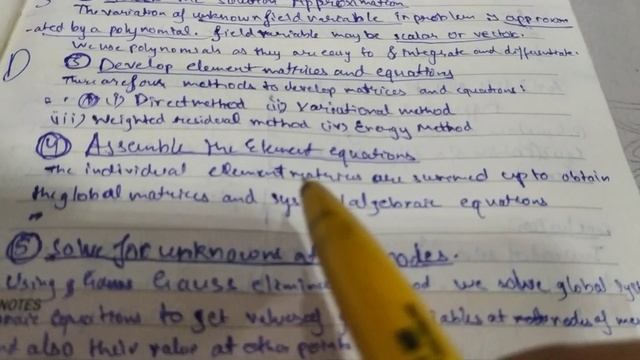 solution Approximation
The variation of unknown field variable in problem is approxim
-ated by a polynomial. field variable may be scalar or vector.
We use polynomials as they are easy to integrate and differentiate.
③ Develop element matrices and equations
There are four methods to develop matrices and equations:
(i) Direct method (ii) Variational method
(iii) Weighted residual method (iv) Energy Method
④ Assemble the Element equations
The individual element matrices are summed up to obtain
the global matrices and sys algebraic equations
⑤ Solve for unknowns at nodes.
Using Gauss we solve global sys
NOTES
equations to get values of at nodes of me
also their value at other points